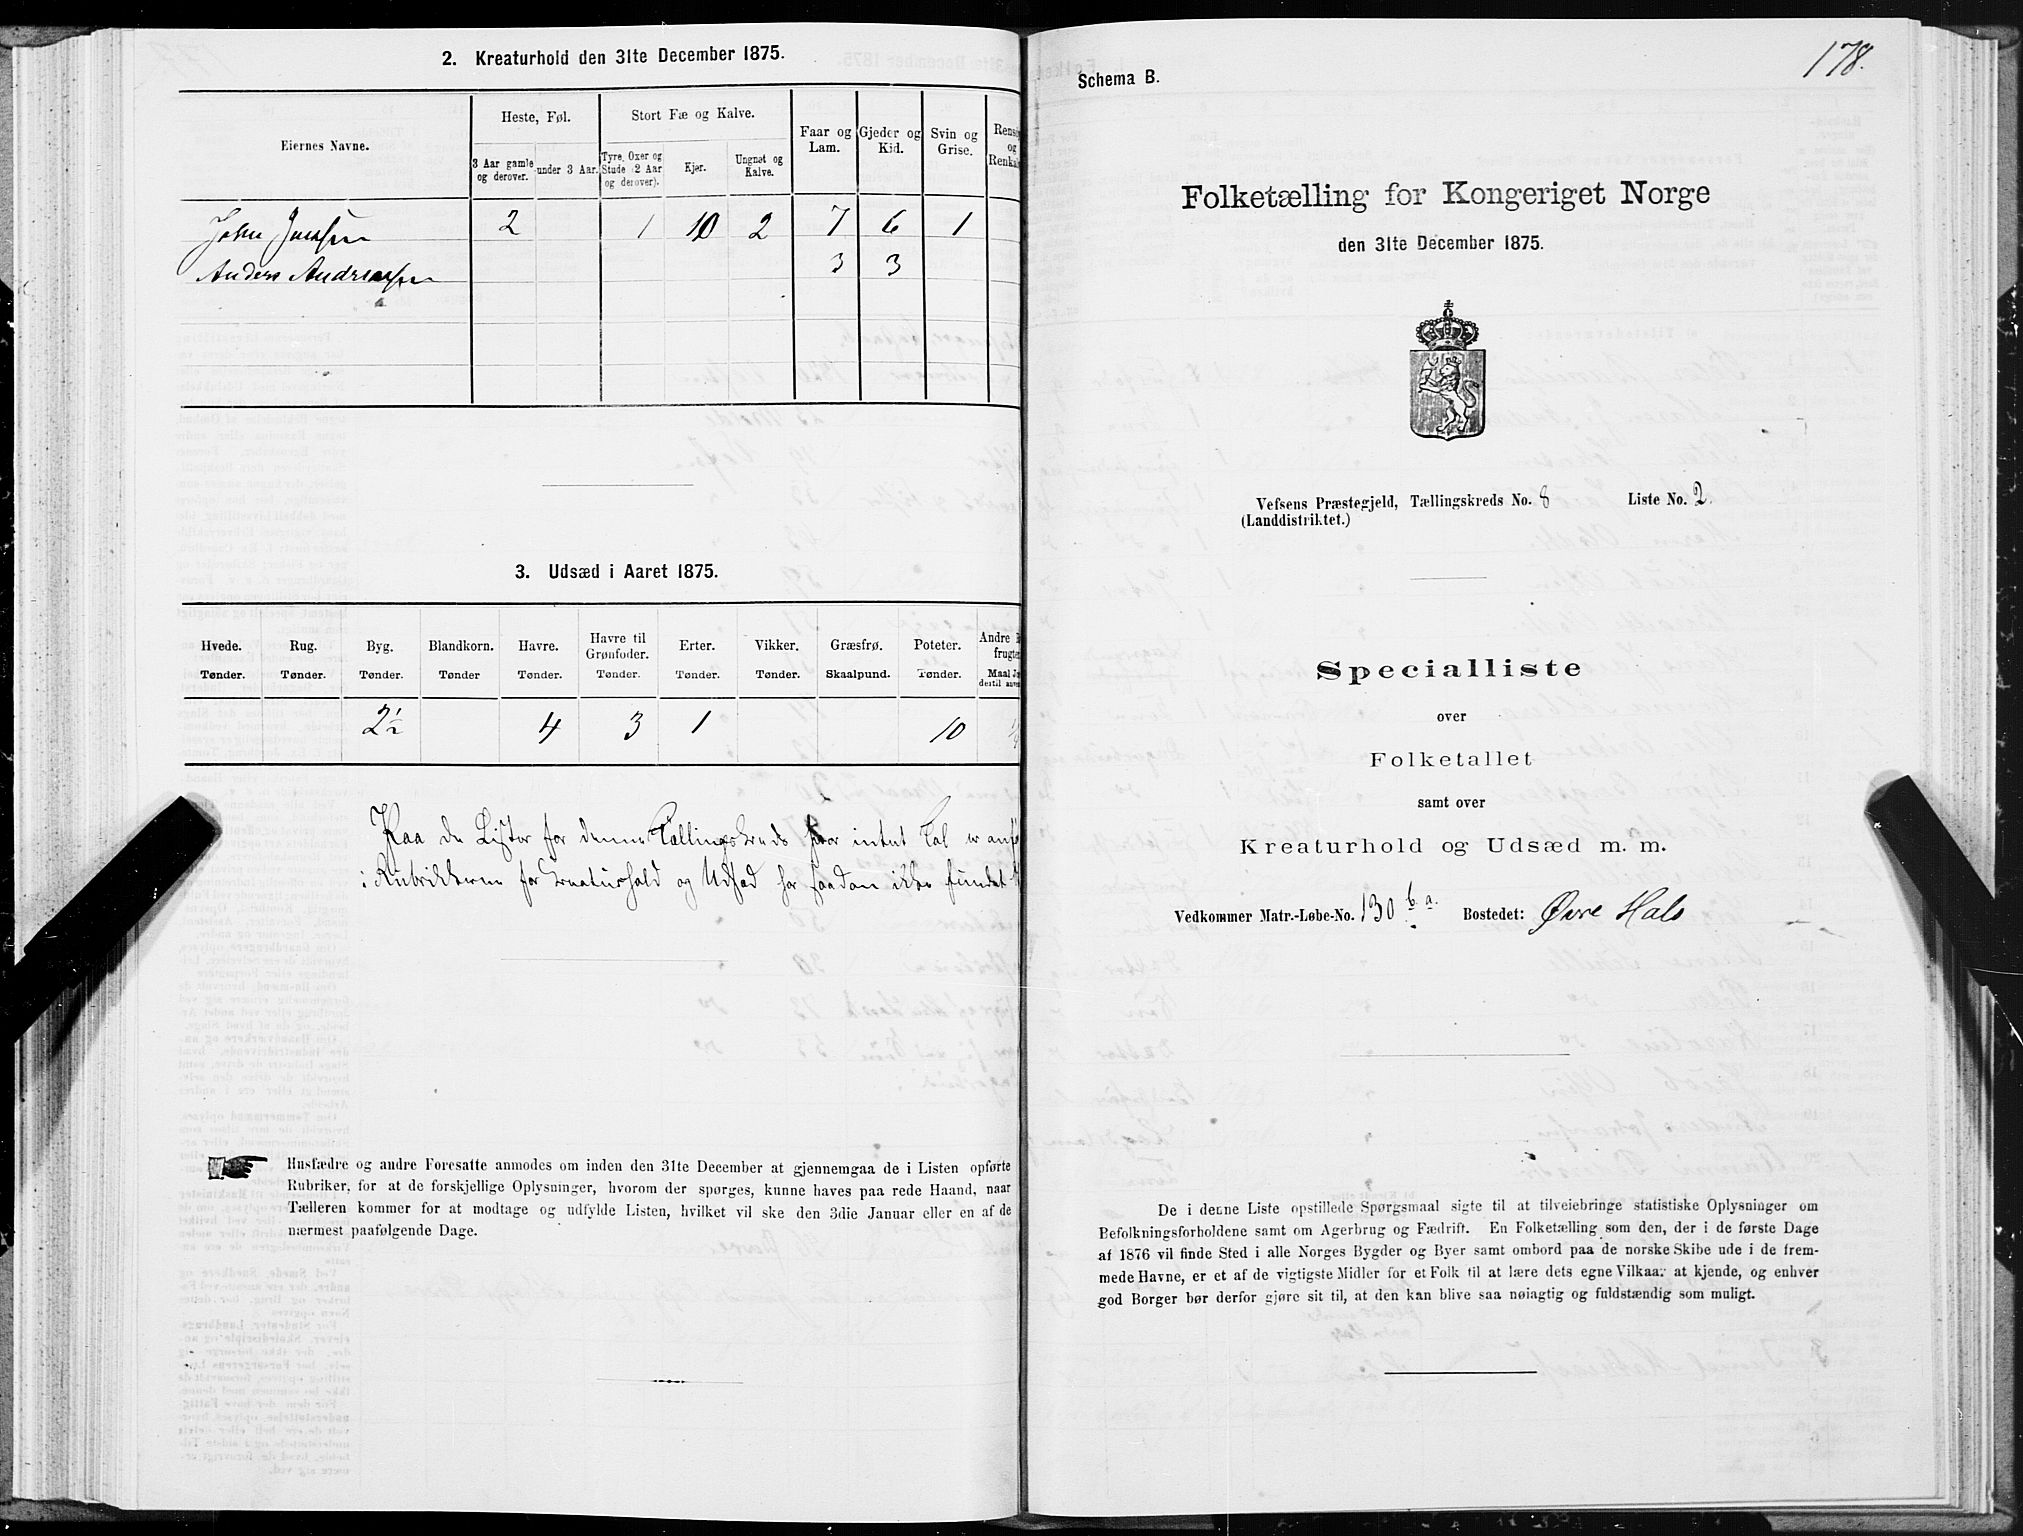 2. Kreaturhold den 31te December 1875.
Eiernes Navne.
Heste, Føl.
Stort Fæ og Kalve.
Faar og Lam.
Gjeder og Kid.
Svin og Grise.
3 Aar gamle og derover.
under 3 Aar.
Tyre, Oxer og Stude (2 Aar og derover).
Kjør.
Ungnøt og Kalve.
John Jensen 2 1 10 2 7 6 1
Anders Andreassen 3 3
3. Udsæd i Aaret 1875.
Hvede. Rug. Byg. Blandkorn. Havre. Havre til Grønfoder. Erter. Vikker. Græsfrø. Poteter.
Tønder. Tønder. Tønder. Tønder Tønder. Tønder. Tønder. Tønder. Skaalpund. Tønder.
2½ 4 3 1 10
Paa de Lister for denne Tællingskreds hvor intet Tal er
i Rubrikkerne for Kreaturhold og Udsæd har saadan ikke fundet
Husfædre og andre Foresatte anmodes om inden den 31te December at gjennemgaa de i Listen opførte
Rubriker, for at de forskjellige Oplysninger, hvorom der spørges, kunne haves paa rede Haand, naar
Tælleren kommer for at modtage og udfylde Listen, hvilket vil ske den 3die Januar eller en af de
nærmest paafølgende Dage.
178.
Schema B.
Folketælling for Kongeriget Norge
den 31te December 1875.
Vefsens Præstegjeld, Tællingskreds No. 8 Liste No. 2.
(Landdistriktet.)
Specialliste
over
Folketallet
samt over
Kreaturhold og Udsæd m. m.
Vedkommer Matr.-Løbe-No. 130 b. a. Bostedet: Øvre Hals
De i denne Liste opstillede Spørgsmaal sigte til at tilveiebringe statistiske Oplysninger om
Befolkningsforholdene samt om Agerbrug og Fædrift. En Folketælling som den, der i de første Dage
af 1876 vil finde Sted i alle Norges Bygder og Byer samt ombord paa de norske Skibe ude i de frem-
mede Havne, er et af de vigtigste Midler for et Folk til at lære dets egne Vilkaar at kjende, og enhver
god Borger bør derfor gjøre sit til, at den kan blive saa nøiagtig og fuldstændig som muligt.